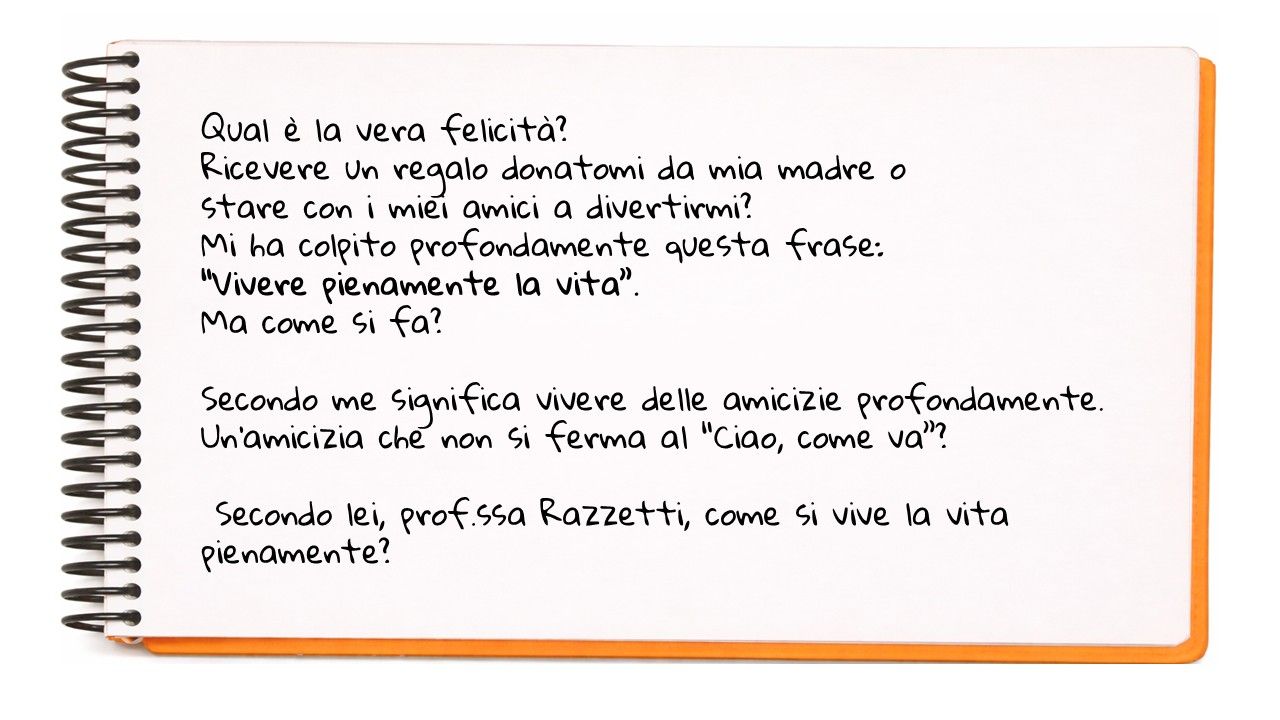 Qual è la vera felicità?
Ricevere un regalo donatomi da mia madre o
stare con i miei amici a divertirmi?
Mi ha colpito profondamente questa frase:
"Vivere pienamente la vita".
Ma come si fa?
Secondo me significa vivere delle amicizie profondamente.
Un'amicizia che non si ferma al "Ciao, come va"?
Secondo lei, prof.ssa Razzetti, come si vive la vita
pienamente?